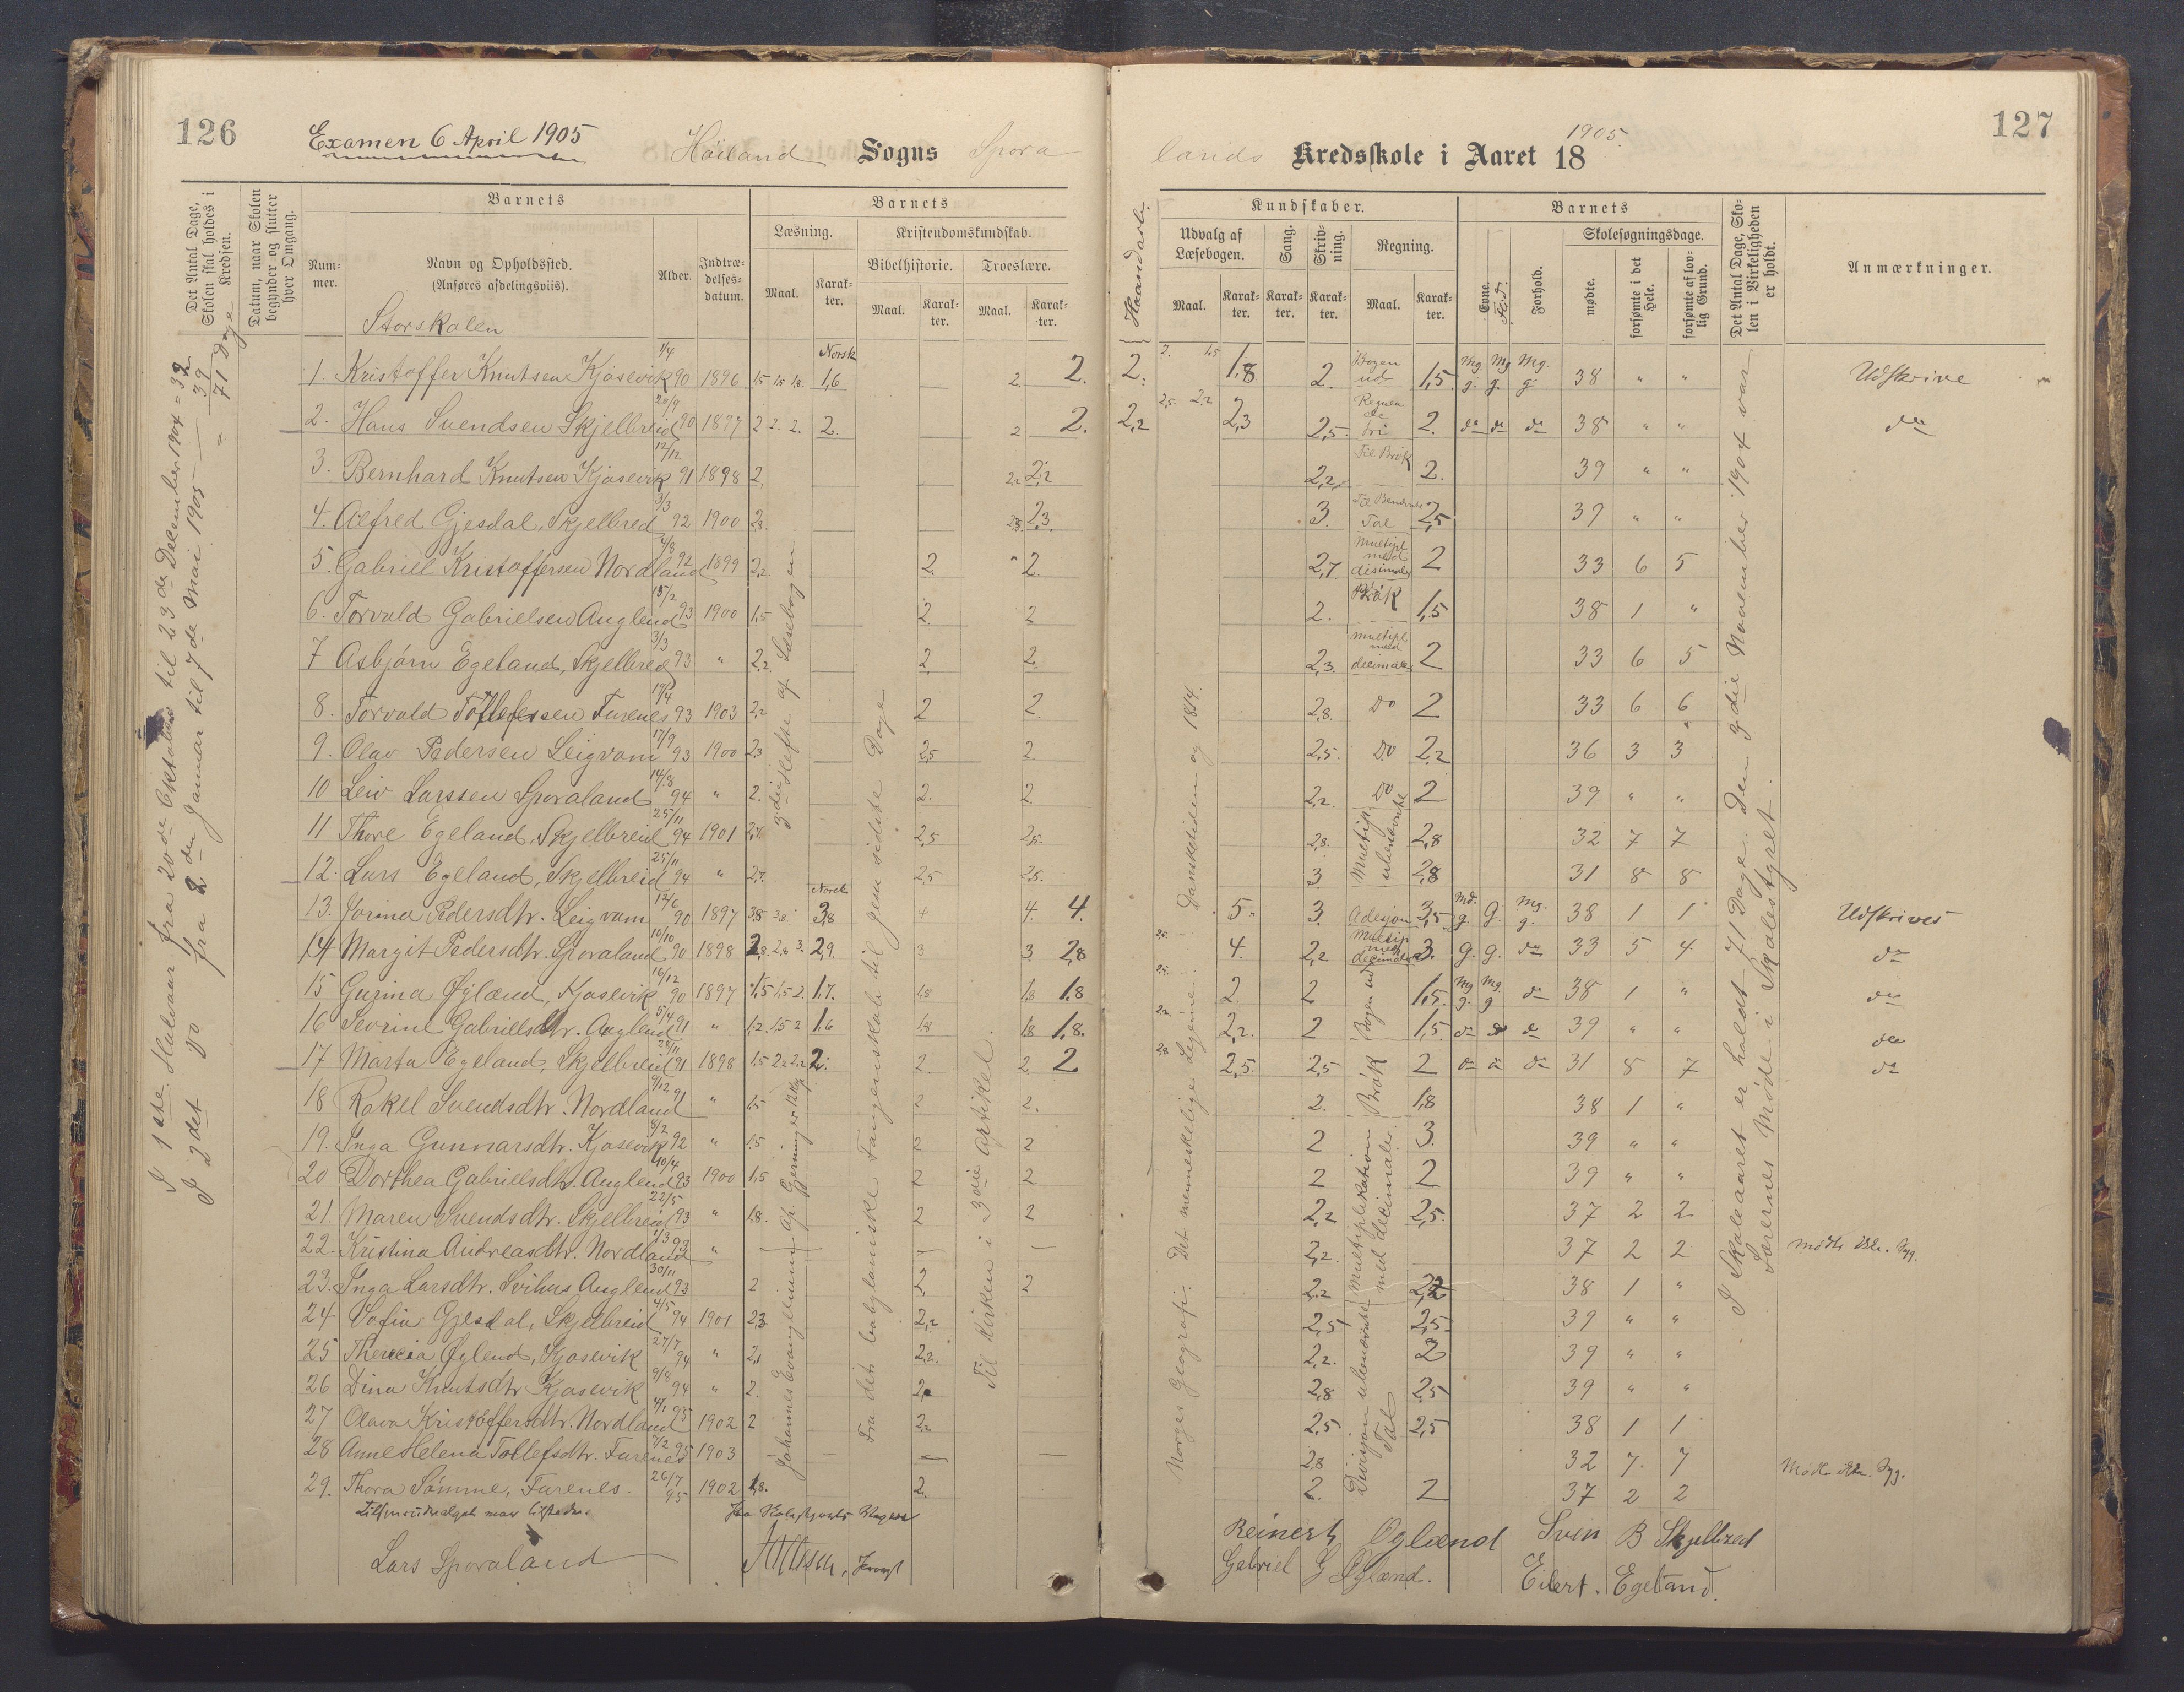 126
Examen 6 April 1905
Høiland Sogns Spora
Det Antal Dage, Skolen skal holdes i Kredsen.
Datum, naar Skolen begynder og slutter hver Omgang.
Barnets
Nummer.
Navn og Opholdssted.
(Anføres afdelingsviis).
Alder.
Indtrædelsesdatum.
Barnets
Læsning.
Kristendomskundskab.
Bibelhistorie.
Troeslære.
Maal.
Karakter.
Maal.
Karakter.
Maal.
Karakter.
Storskolen
I 1ste Halvaar fra 20de Oktober til 23de December 1904 = 32
I 2det Do fra 2den Januar til 7de Mai 1905 — 39
= 71 Dage
Norsk
1. Kristoffer Knutsen Kjosevik 1/4 90 1896 1,5 1,5 1,8 1,6 2. 2.
2. Hans Svendsen Skjelbreid 20/9 90 1897 2 2. 2. 2. 2 2.
3. Bernhard Knutsen Kjosevik 12/12 91 1898 2, 2,2 2,2
4. Alfred Gjesdal, Skjelbred 3/3 92 1900 2,3. 2,3. 2,3.
5. Gabriel Kristoffersen Nordland 7/8 92 1899 2,2 2. " 2.
6. Torvald Gabrielsen Auglend 15/2 93 1900 1,5 2. 2
7 Asbjørn Egeland, Skjelbreid 3/3 93 " 2,2 2. 2.
8. Torvald Tollefsen Furenes 19/4 93 1903 2,2 2 2.
9. Olav Pedersen Leigvam 17/9 93 1900 2,3 2,5 2
10 Leiv Larssen Sporaland 14/8 94 " 2. 2. 2.
11 Thore Egeland, Skjelbreid 25/11 94 1901 2,7 2,5 2,5.
12. Lars Egeland, Skjelbreid 25/11 94 " 2,7. 2,5 2,5.
Norsk
13. Jorina Pedersdtr. Leigvam 12/6 90 1897 3,8 3,8. 3,8 4 4. 4.
14 Margit Pedersdtr. Sporaland 10/10 90 1898 2,8. 2,8 3. 2,9. 3 3 2,8
15 Gurina Øglænd, Kjosevik 16/12 90 1897 1,5 1,5 2. 1,7. 1,8 1,8 1,8
16 Sevrine Gabrielsdtr. Auglend 5/4 91 " 1,2. 1,5 2 1,6 1,8 1,8 1,8.
17 Marta Egeland, Skjelbreid 28/11 91 1898 1,5 2,2 2,2 2. 2. 2. 2
18 Rakel Svendsdtr. Nordland 9/12 91 " 1,5 2 2.
19. Inga Gunnarsdtr. Kjosevik 8/2 92 " 1,5 2 2
20 Dorthea Gabrielsdtr. Auglend 10/4 93 1900 1,5 2 2
21. Maren Svendsdtr. Skjelbreid 22/5 93 " 1,8. 2 2
22. Kristina Andreasdtr. Nordland 1/3 93 "
23. Inga Larsdtr. Svihus Auglend 30/11 93 2 2 2
24 Sofia Gjesdal, Skjelbreid 4/5 94 1901 2,3 2,2
25 Therecia Øglend, Kjosevik 27/7 94 " 2,1 2,2.
26 Dina Knutsdtr Kjosevik 9/8 94 " 2. 2.
27 Olava Kristoffersdtr. Nordland 4/1 95 1902 2 2,2
28 Anne Helena Tollefsdtr. Furenes 7/2 95 1903 — — —
29. Thora Sømme, Furenes. 26/7 95 1902 1,8. 2.
3die Hefte af Læsebogen
Johannes Evangelium
Fra det babylaniske Fangenskab til
sidste Dage
Til Kirken i 3die Artikel
Lars Sporaland
127
lands Kredsskole i Aaret 18 1905.
Haandarb.
Kundskaber.
Udvalg af Læsebogen.
Sang.
Skrivning.
Regning.
Maal.
Karakter.
Karakter.
Karakter.
Maal.
Karakter.
Barnets
Evne.
Flid.
Forhold.
Skolesøgningsdage.
mødte.
forsømte i det Hele.
forsømte af lovlig Grund.
Det Antal Dage, Skolen i Virkeligheden er holdt.
Anmærkninger.
2. 2. 1,5 1,8 2. Bogen ud 1,5. Mg. g. Mg. g. Mg. g. 38 " " Udskrive
2,2 2,5. 2,2 2,3 2,5. Regula de tri 2. do do do 38 " " do
2,2. Til Brøk 2. 39 " "
3. Til Benævnte Tal 2,5 39 " "
2,7. Multipl med desimaler 2 33 6 5
2. Brøk 1,5 38 1 "
2,3. Multipl med decimaler 2 33 6 5
2,8. Do 2 33 6 6
2,5. Do 2,2 36 3 3
2,2. Do 2 39 " "
2,8. Multip. ubenævnte 2,8 32 7 7
3 2,8 31 8 8
5. 3. Adesjon 3,5 Md. g. g. Mg. g. 38 1 1 Udskrives
4. 2,2 Multip med decimaler 3. g. g. do 33 5 4 do
2 2 Bogen ud 1,5. Mg. g. Mg. g do 38 1 " do
2,2. 2 1,5 do do do 39 " " do
2,5. 2,5 Brøk 2 do do do 31 8 7 do
2. 1,8 38 1 "
2 Multiplikation med decimaler. 3. 39 " "
2 2 39 " "
2,2 2,5. 37 2 2
2,2. 37 2 2 Mødte ikke. Syg.
2,2 2,2 38 1 "
2,5 Divisjon ubenævnte Tal 2,5. 39 " "
2,2. 2 39 " "
2,8 2,5 39 " "
2,5 2,5 38 1 1
2,8 32 7. 7 Mødte ikke. Syg.
2. 2 37 2 2
Norges Geografi. Det menneskelige Legeme. Dansketiden og 1814.
I Skoleaaret er holdt 71 Dage. Den 3die November 1904 var
Lærernes Møde i Skolestyret.
Reinert Oglænd Sven B Skjelbred
Gabriel G Øglænd. Eilert. Egeland.